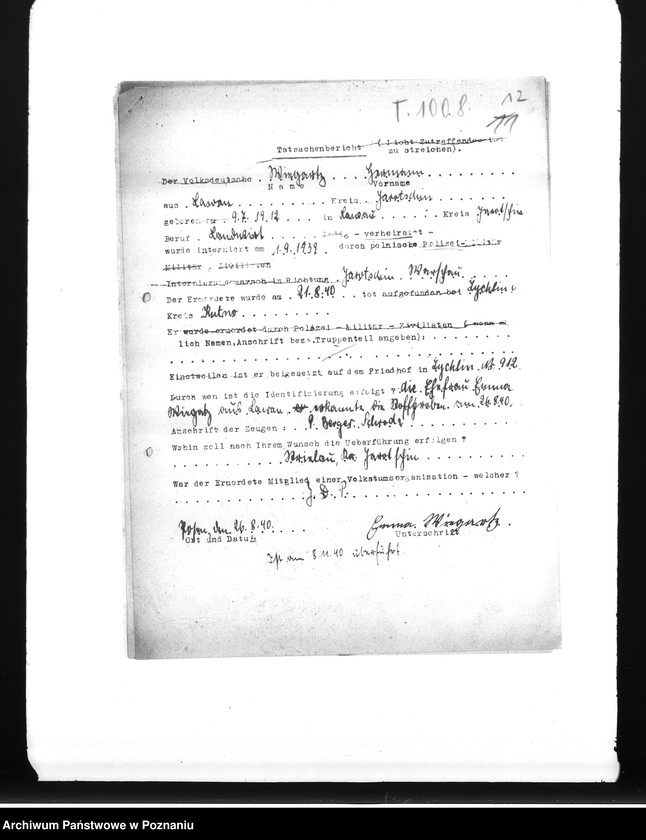 T. 1008.
12
11
Tatsachenbericht ( Nicht Zutreffendes ist
zu streichen).
Der Volksdeutsche . Wiegartz . . . . Hermann . . . . . . . .
Name Vorname
aus . Lawau . . . . . . . . . Kreis. Jarotschin . . . . . .
geboren am . 9.7. 19.12 . . . in Lawau . . . . : . Kreis Jarotschin
Beruf . Landwirt . . . . . . - verheiratet -
wurde interniert am . 1.9.1939 . durch polnische Polizei-Militär
Militär , Zivilisten
Internierungsmarsch in Richtung . Jarotschin . Warschau . . . .
Der Ermordete wurde am . 21.8.40 . . . tot aufgefunden bei Zychlin .
Kreis Kutno . . . . . . . . . .
Er wurde ermordet durch Polizei - Militär - Zivilisten (
lich Namen, Anschrift bezw. Truppenteil angeben): . . . . . . . .
Einstweilen ist er beigesetzt auf dem Friedhof in Zychlin . Nr. 912
Durch wen ist die Identifizierung erfolgt ? die Ehefrau Emma
aus Lawau . erkannte die am 26.8.40.
Anschrift der Zeugen : . . P. Berger. Schroda . . . . . .
Wohin soll nach Ihrem Wunsch die Ueberführung erfolgen ?
. . . . . . . . . . Kr. Jarotschin . . . . . . . .
War der Ermordete Mitglied einer Volkstumsorganisation - welcher ?
. . . . . . . . . . J. D. P. . . . . . . . . . . .
Posen, den 26.8.40. . . . Emma Wiegartz .
Ort und Datum Unterschrift
Ist am 8.11.40 überführt.
Archiwum Państwowe w Poznaniu